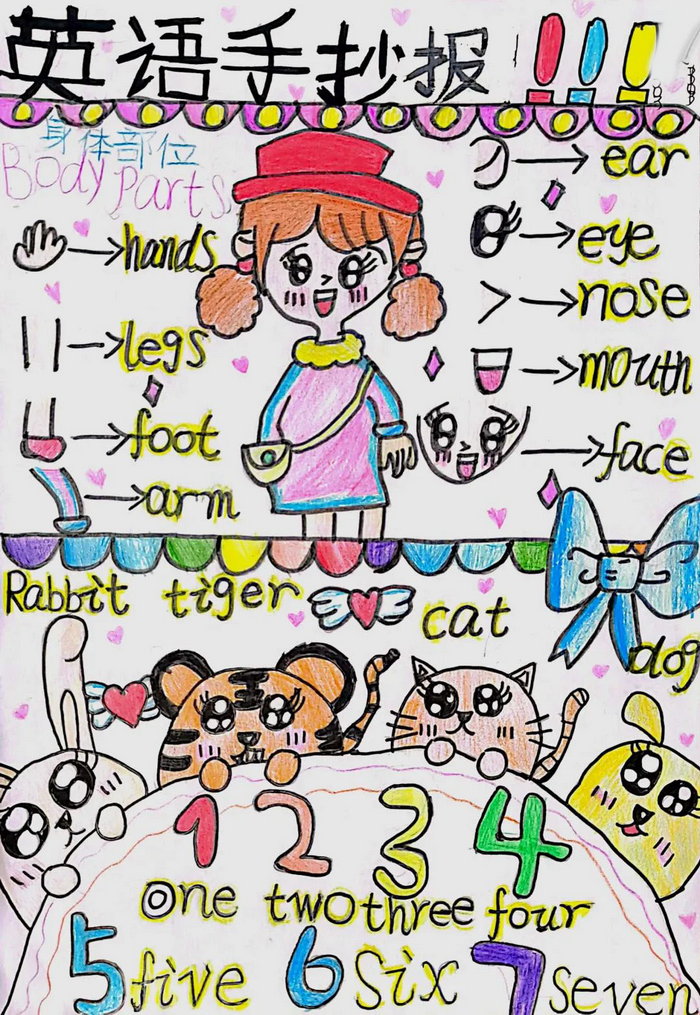 英语手抄报!!!
身体部位
Body parts
hands
legs
foot
arm
ear
eye
nose
mouth
face
Rabbit tiger cat dog
1 2 3 4
one two three four
5 five 6 Six 7 seven